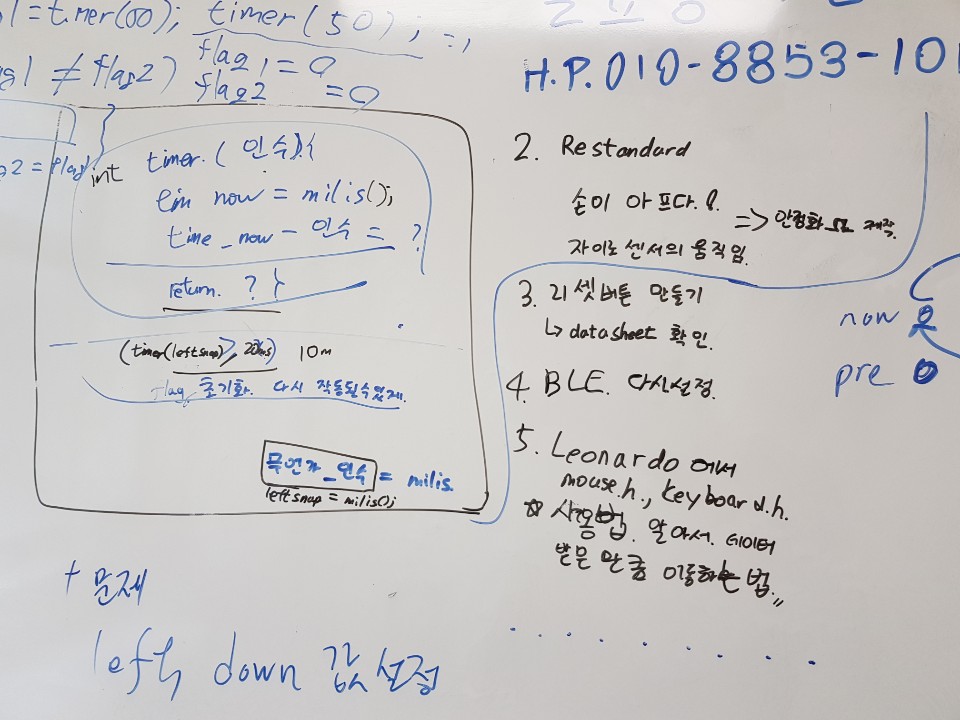 l = timer(00); timer(50);
flag1 = 0
ag1 ≠ flag2) flag2 = 0
H.P. 010-8853-101
g2 = flag1
int timer. ( 인수){
tim now = milis();
time_now - 인수 = ?
return. ? }
(timer(leftsnap)>, 20ms) 10m
flag 초기화. 다시 작동될수있게.
무언가_인수 = milis.
leftsnap = milis();
+ 문제
left, down 값 설정
2. Restandard
손이 아프다.
=> 안정화 제작.
자이로 센서의 움직임.
3. 리셋버튼 만들기
↳ datasheet 확인.
4. BLE. 다시설정.
5. Leonardo 에서
mouse.h., keyboard.h.
☆ 사용법. 알아서. 데이터
받은 만큼 이동하는 법.,,
now 요
pre 0